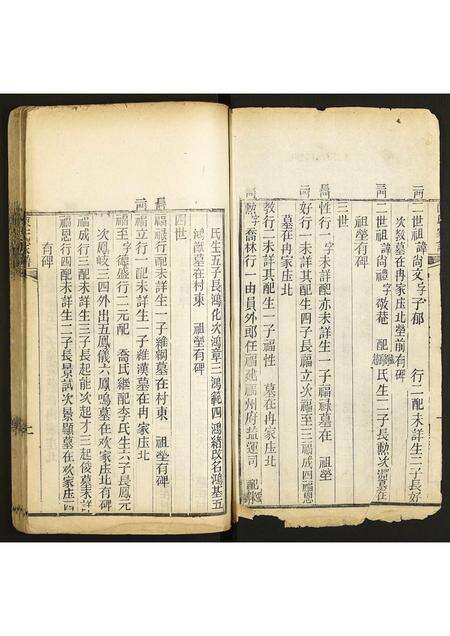 二世祖諱尚文字子郁 行二配未詳生二子長好
次敎墓在冉家庄北塋前有碑
二世祖諱尚禮字敬菴 配 氏生二子長勲次 墓在
祖塋有碑
三世
性行一字未詳配亦未詳生一子福祿墓在 祖塋
好行一未詳其配生四子長福立次福至三福成四福恩
墓在冉家庄北
敎行二未詳其配生一子福性 墓在冉家庄北
勲字喬林行一由員外郎任福建福州府塩運司 配
氏生五子長鴻化次鴻章三鴻範四鴻緒改名鴻基五
鴻 墓在村東 祖塋有碑
四世
福 行配未詳生一子維綱墓在村東 祖塋有碑
福立行一配未詳生一子維漢墓在冉家庄北
福至字德盛行二元配 喬氏継配李氏生六子長鳳元
次鳳岐三四外出五鳳儀六鳳鳴墓在欢家庄北有碑
福成行三配未詳生三子長起能次起才三起俊墓未詳
福恩行四配未詳生二子長景試次景顯墓在欢家庄西
有碑